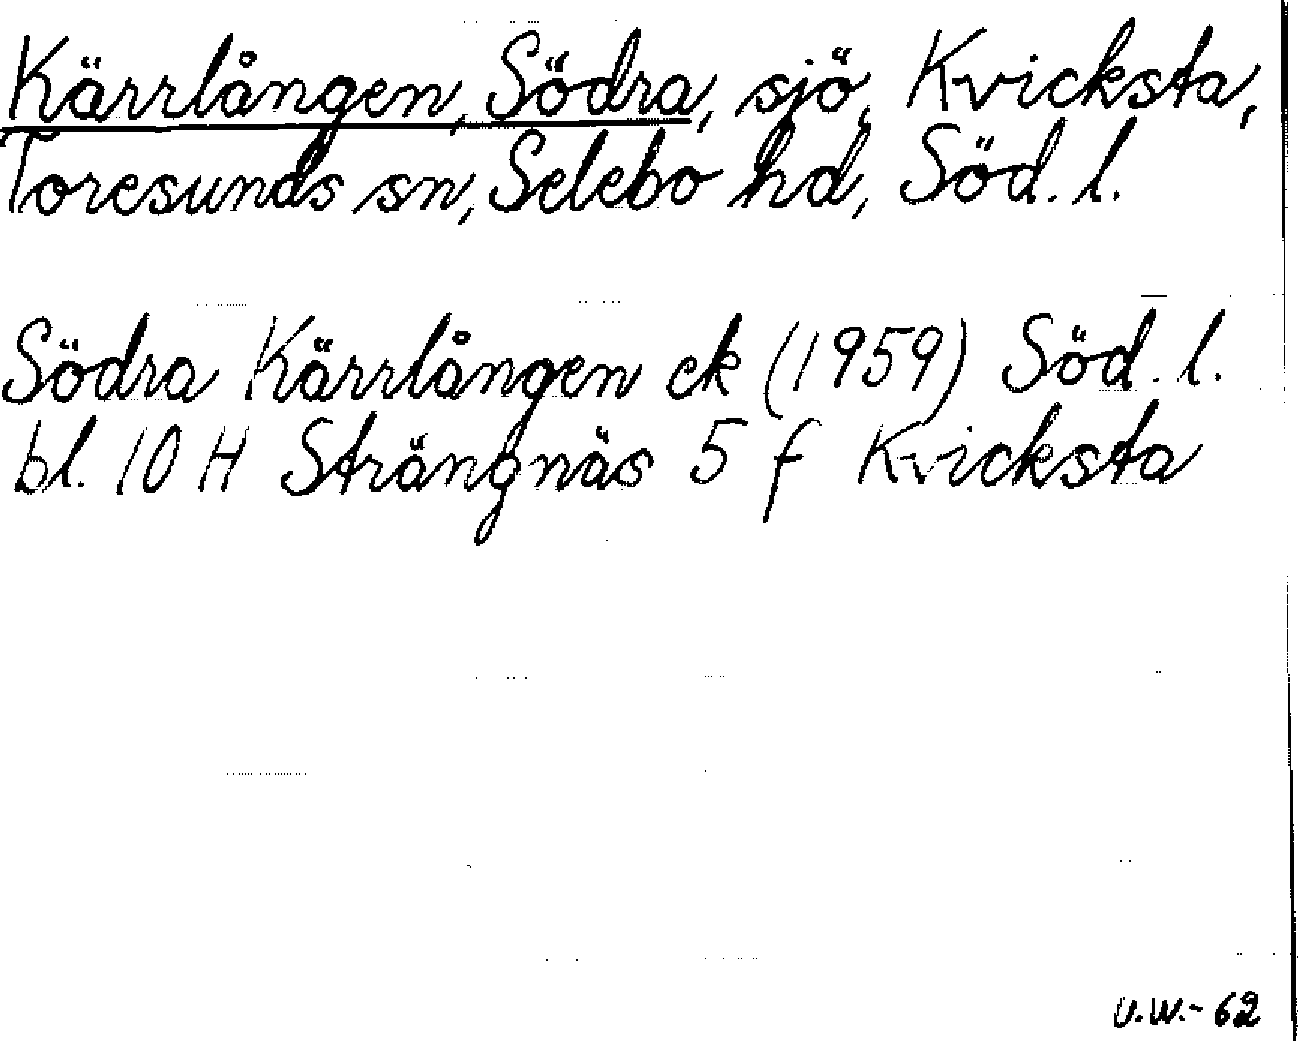 Kärrlången, Södra, sjö, Kvicksta,
Toresunds sn, Selebo hd, Söd. l.
Södra Kärrlången ek (1959) Söd. l.
bl. 10 H Strängnäs 5 f Kvicksta
U.W.-62